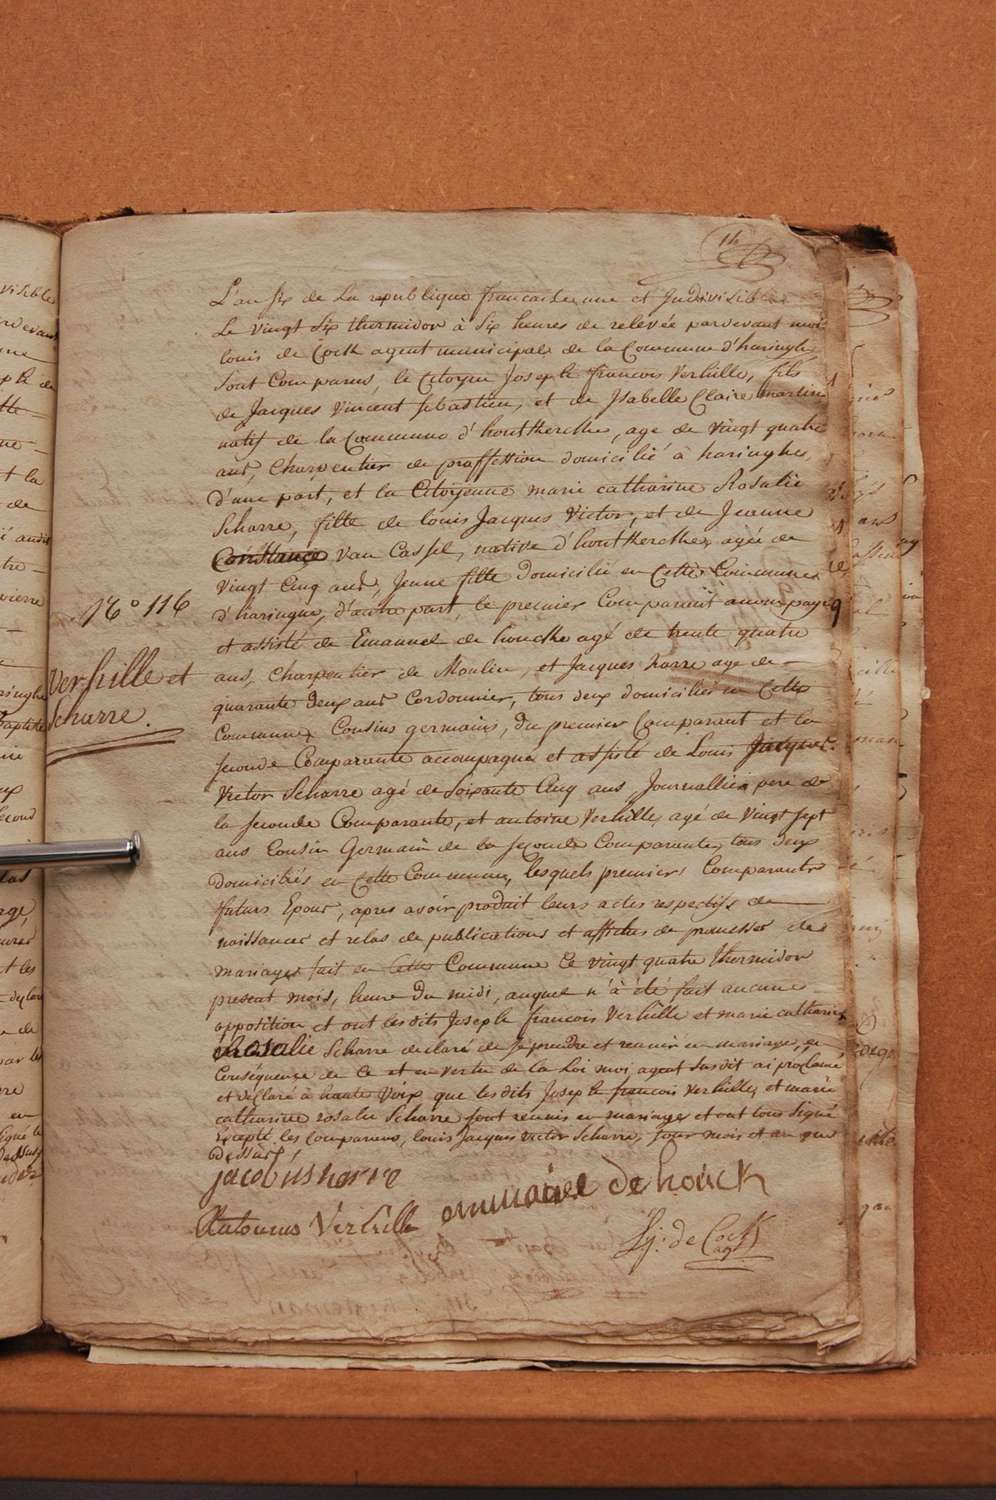 14
L'an six de la republique francaise une et Indivisible
Le vingt six thermidor à six heures de relevée pardevant moi
louis de Cock agent municipale de la Commune d'haringhe
sont Comparus, le Citoyen Joseph francois Verhille, fils
de Jacques Vincent sebastien, et de Isabelle Claire martin
natif de la Commune d'houtkercke, age de vingt quatre
ans, Charpentier de proffession domicilié à haringhe,
d'une part, et la Citoyenne marie catharine Rosalie
Scharre, fille de louis Jacques Victor, et de Jeanne
Constance van Cassel, native d'houtkercke, agée de
vingt Cinq ans, Jeune fille domicilié en Cette Commune
d'haringue, d'autre part, le premier Comparant accompagné
et assisté de Emanuel de houcke agé de trente quatre
ans, Charpentier de Moulin, et Jacques harre age de
quarante deux ans Cordonnier, tous deux domiciliés en Cette
Commune, Cousins germains, du premier Comparant et la
seconde Comparante accompagné et assisté de Louis Jacques
Victor Scharre agé de soixante Cinq ans Journallier pere de
la seconde Comparante, et antoine Verhille, agé de vingt sept
ans Cousin Germain de la seconde Comparante, tous deux
domiciliés en Cette Commune, lesquels premiers Comparants
futurs Epoux, apres avoir produit leurs actes respectifs de
naissances et celas de publications et affiches de promesses de
mariages fait en Cette Commune le vingt quatre thermidor
present mois, heure du midi, auquel n'à été fait aucune
opposition et ont lesdits Joseph francois Verhille et marie catharine
Rosalie Scharre declaré de se prendre et reunir en mariage, en
Conséquence de Ce et en vertu de la Loi moi agent susdit ai proclamé
et declaré à haute Voix que lesdits Joseph francois Verhille, et marie
catharine rosalie Scharre sont reunis en mariage, et ont tous signé
excepté les Comparans, louis Jacques victor Scharre, Jour mois et an que
dessus.
N° 116
Verhille et
Scharre.
jacobus harre
emmanuel de houck
Antonius Verhille
L j: de Cock
agt